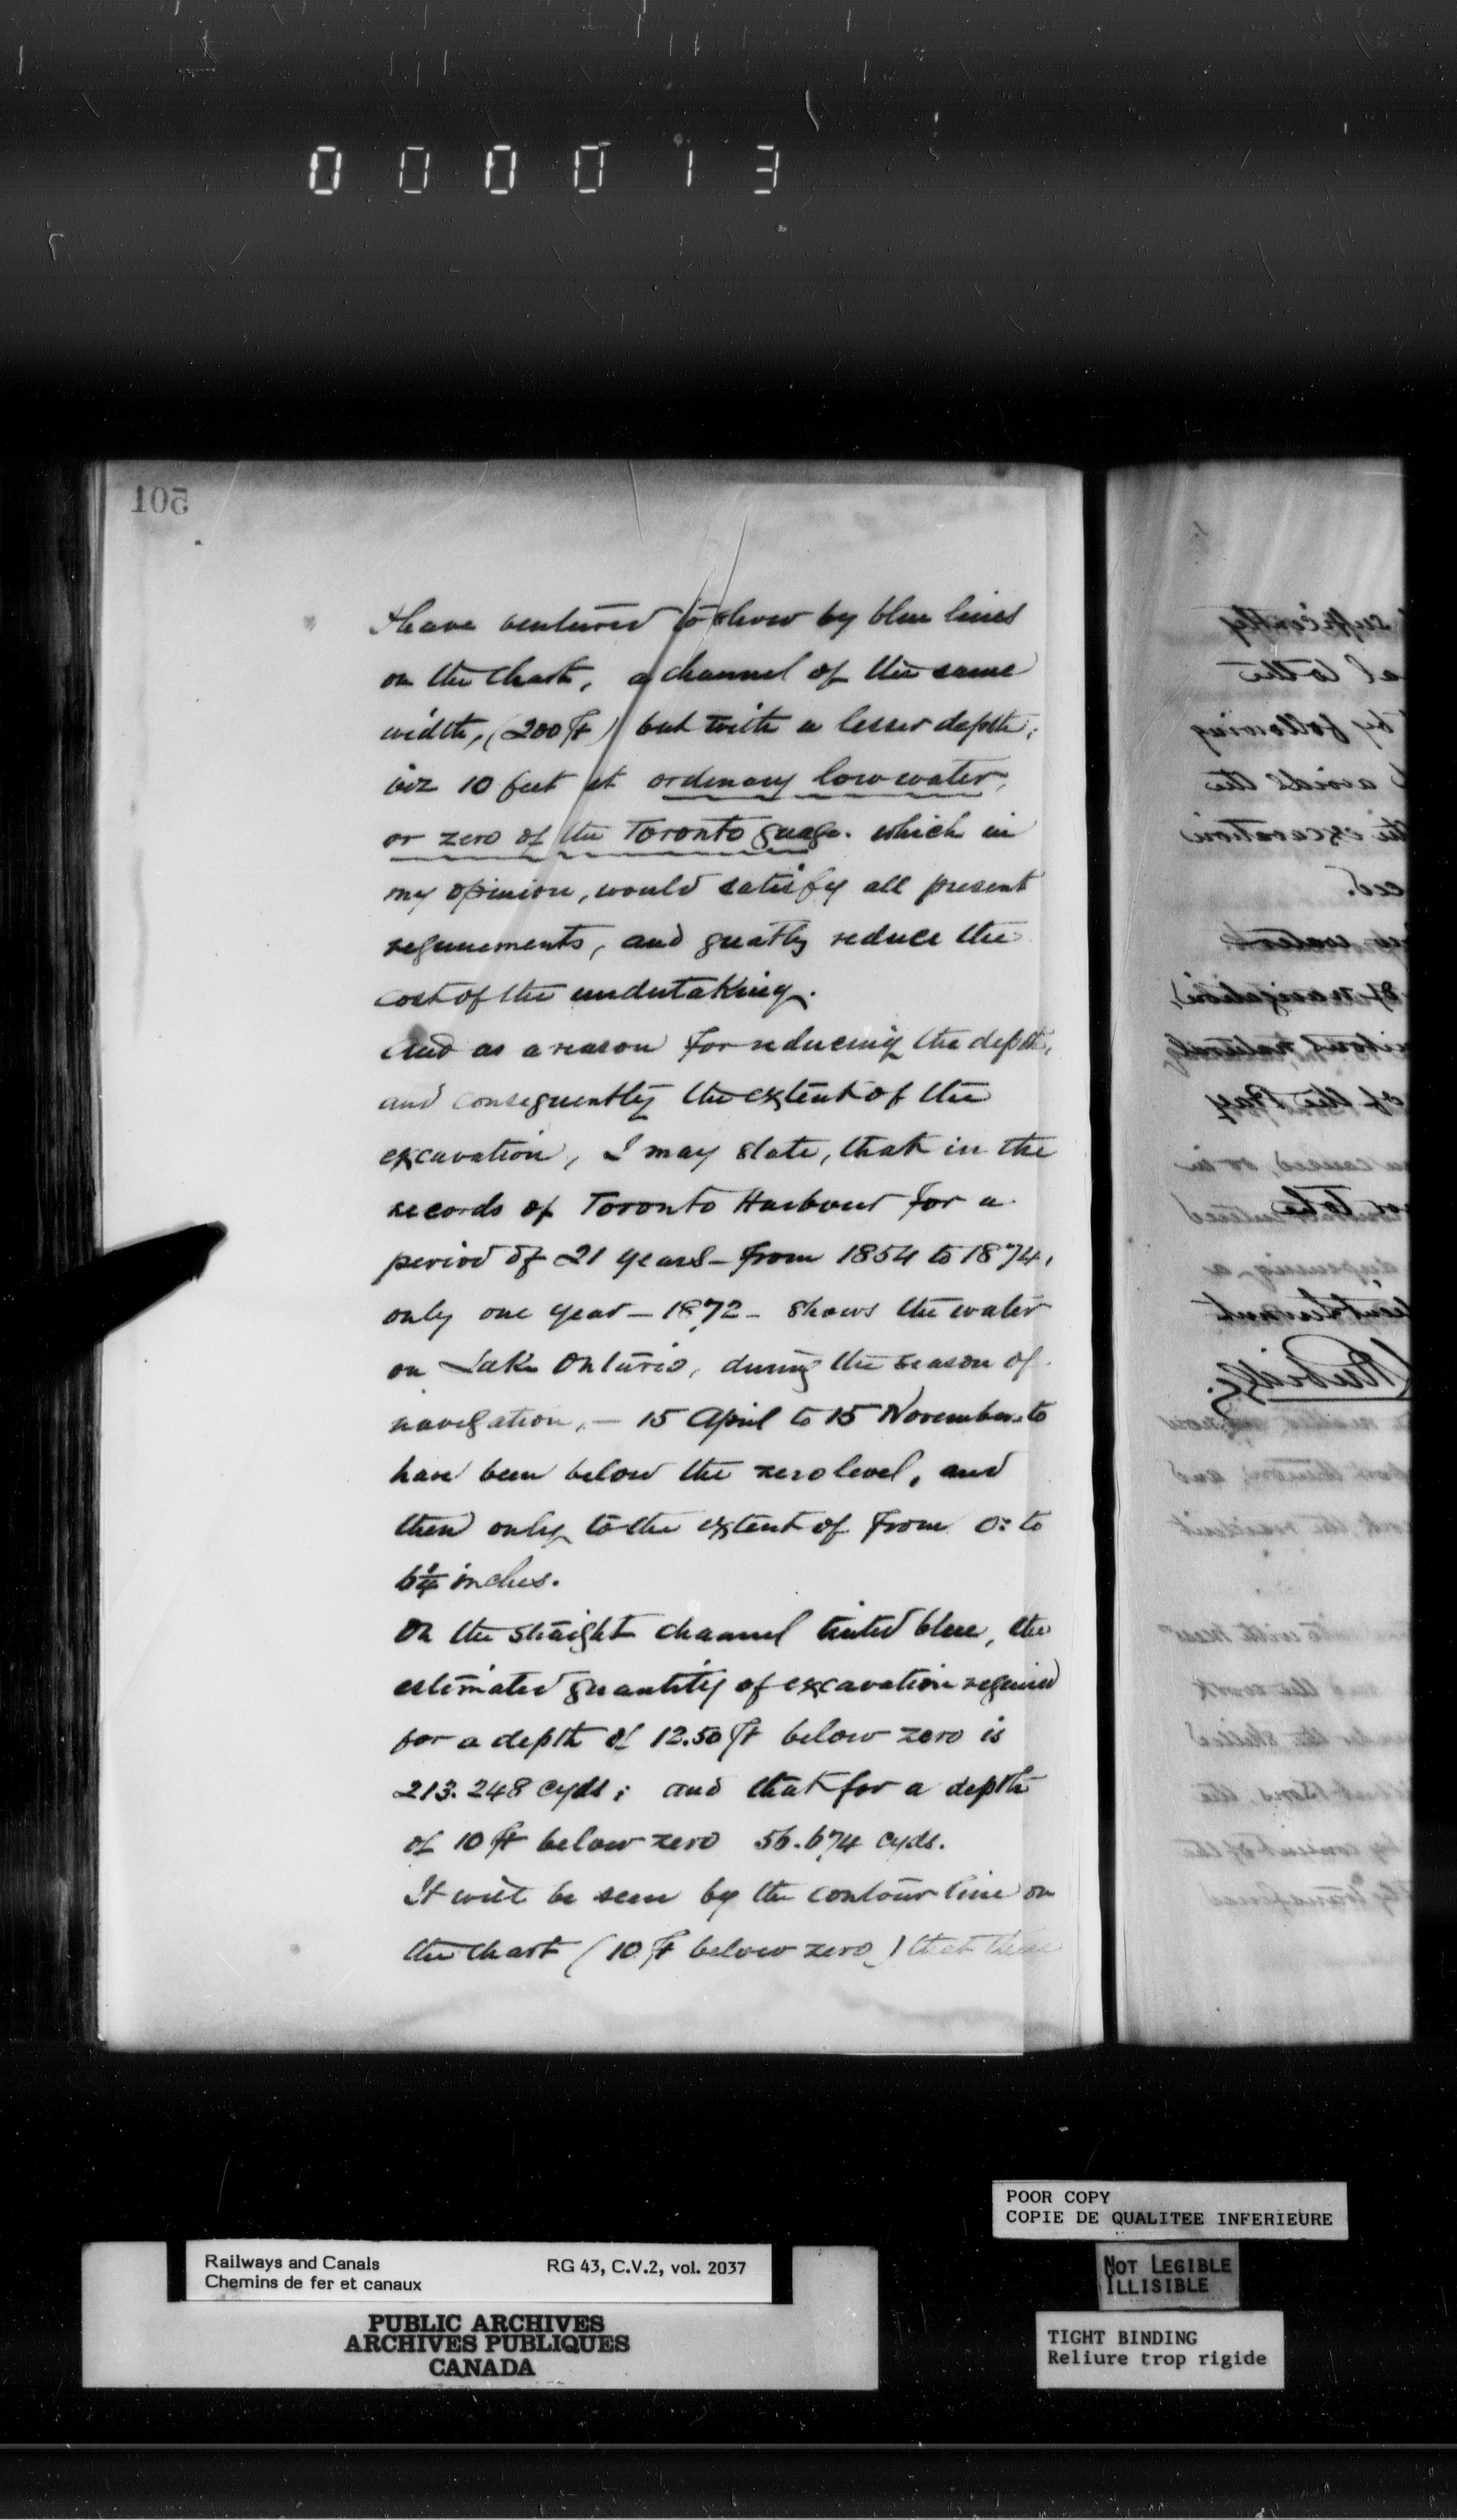 000013
105
I have ventured to show by blue lines
on the Chart, a channel of the same
width, (200 ft) but with a lesser depth;
viz 10 feet at ordinary low water,
or zero of the Toronto guage. which in
my opinion, would satisfy all present
requirements, and greatly reduce the
cost of the undertaking.
And as a reason for reducing the depth,
and consequently the extent of the
excavation, I may state, that in the
records of Toronto Harbour for a
period of 21 years - from 1854 to 1874,
only one year - 1872 - shows the water
on Lake Ontario, during the season of
navigation, - 15 April to 15 November to
have been below the zero level, and
then only to the extent of from 0: to
6¼ inches.
On the straight channel tinted blue, the
estimated quantity of excavation required
for a depth of 12.50 ft below zero is
213.248 cyds; and that for a depth
of 10 ft below zero 56.674 cyds.
It will be seen by the contour line on
the chart (10 ft below zero) that there
sufficiently
al to the
by following
avoids the
the excavation
of navigation
of the Bay
Rubidge.
POOR COPY
COPIE DE QUALITEE INFERIEURE
NOT LEGIBLE
ILLISIBLE
TIGHT BINDING
Reliure trop rigide
Railways and Canals RG 43, C.V.2, vol. 2037
Chemins de fer et canaux
PUBLIC ARCHIVES
ARCHIVES PUBLIQUES
CANADA